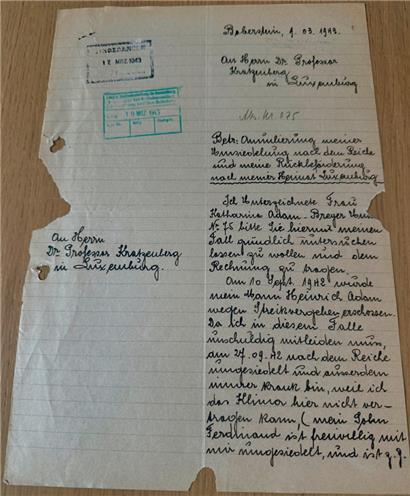 Boberstein, 9.03.1943.
EINGEGANGEN
12 MRZ 1943
An Herrn Dr. Professor
Kratzenberg
in Luxemburg
19 MRZ 1943
Betr: Annulierung meiner
Umsiedelung nach dem Reiche
und meine Rückbeförderung
nach meiner Heimat Luxemburg
Ich Unterzeichnete Frau
Katharina Adam-Breyer
Nr 75 bitte Sie hiermit meinen
Fall gründlich untersuchen
lassen zu wollen und dem
Rechnung zu tragen.
Am 10 Sept. 1942 wurde
mein Mann Heinrich Adam
wegen Streikvergehen erschossen.
Da ich in diesem Falle
unschuldig mitleiden muss,
am 27.09.42 nach dem Reiche
umgesiedelt und ausserdem
immer krank bin, weil ich
das Klima hier nicht ver-
tragen kann, (mein Sohn
Ferdinand ist freiwillig mit
mir umgesiedelt, und ist z.Z.
An Herrn
Dr. Professor Kratzenberg
in Luxemburg.